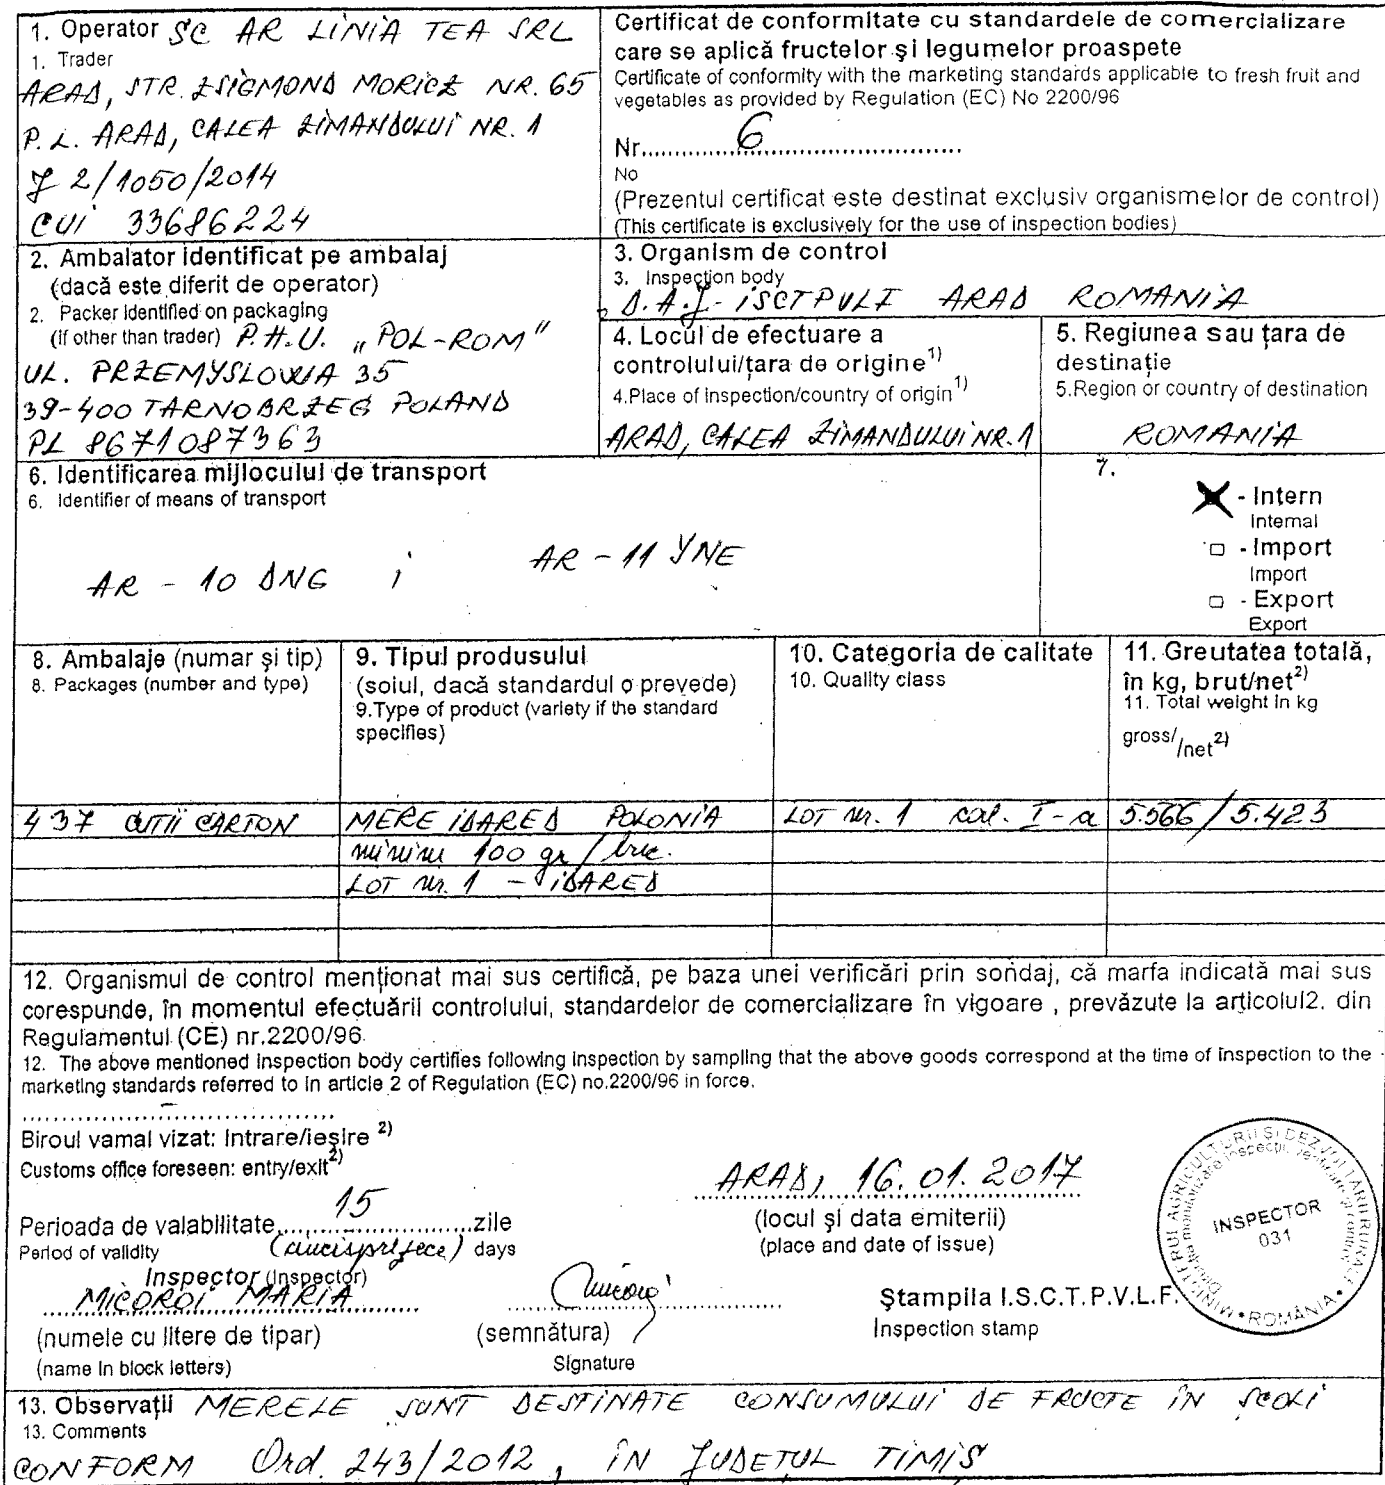 1. Operator SC AR LINIA TEA SRL
1. Trader
ARAD, STR. ZSIGMOND MORICZ NR. 65
P.L. ARAD, CALEA ZIMANDULUI NR. 1
J 2/1050/2014
CUI 33686224
Certificat de conformitate cu standardele de comercializare
care se aplică fructelor şi legumelor proaspete
Certificate of conformity with the marketing standards applicable to fresh fruit and
vegetables as provided by Regulation (EC) No 2200/96
Nr. 6
No
(Prezentul certificat este destinat exclusiv organismelor de control)
(This certificate is exclusively for the use of inspection bodies)
2. Ambalator identificat pe ambalaj
(dacă este diferit de operator)
2. Packer identified on packaging
(if other than trader) P.H.U. „POL-ROM"
UL. PRZEMYSLOWA 35
39-400 TARNOBRZEG POLAND
PL 8671087363
3. Organism de control
3. Inspection body
D.A.J- ISCTPVLF ARAD ROMANIA
4. Locul de efectuare a
controlului/ţara de origine1)
4.Place of inspection/country of origin1)
ARAD, CALEA ZIMANDULUI NR.1
5. Regiunea sau ţara de
destinaţie
5.Region or country of destination
ROMANIA
6. Identificarea mijlocului de transport
6. Identifier of means of transport
AR - 10 DNG ; AR - 11 YNE
7.
X - Intern
Internal
□ - Import
Import
□ - Export
Export
8. Ambalaje (numar şi tip)
8. Packages (number and type)
9. Tipul produsului
(soiul, dacă standardul o prevede)
9.Type of product (variety if the standard
specifies)
10. Categoria de calitate
10. Quality class
11. Greutatea totală,
în kg, brut/net2)
11. Total weight in kg
gross/ /net2)
437 CUTII CARTON MERE IDARED POLONIA LOT nr. 1 cal. I-a 5.566/5.423
minim 100 gr/buc.
LOT nr. 1 - IDARED
12. Organismul de control menţionat mai sus certifică, pe baza unei verificări prin sondaj, că marfa indicată mai sus
corespunde, în momentul efectuării controlului, standardelor de comercializare în vigoare , prevăzute la articolul2. din
Regulamentul (CE) nr.2200/96
12. The above mentioned inspection body certifies following inspection by sampling that the above goods correspond at the time of inspection to the
marketing standards referred to in article 2 of Regulation (EC) no.2200/96 in force.
Biroul vamal vizat: Intrare/ieşire 2)
Customs office foreseen: entry/exit2)
ARAD, 16.01.2017
(locul şi data emiterii)
(place and date of issue)
Perioada de valabilitate 15 zile
Period of validity (cincisprezece) days
Inspector (Inspector)
MICOROI MARIA
(numele cu litere de tipar)
(name in block letters)
(semnătura)
Signature
Ştampila I.S.C.T.P.V.L.F.
Inspection stamp
MINISTERUL AGRICULTURII ŞI DEZVOLTĂRII RURALE
• ROMÂNIA •
INSPECTOR
031
13. Observaţii MERELE SUNT DESTINATE CONSUMULUI DE FRUCTE ÎN ŞCOLI
13. Comments
CONFORM Ord. 243/2012, ÎN JUDEŢUL TIMIŞ